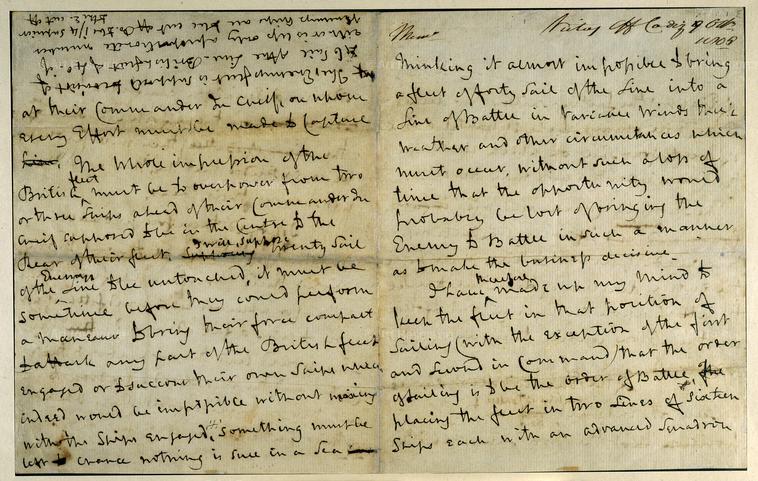 Memn
Victory off Cadiz 9 Octr
1805
Thinking it almost impossible to bring
a fleet of forty Sail of the Line into a
Line of Battle in variable winds thick
weather and other circumstances which
must occur, without such a loss of
time that the opportunity would
probably be lost of bringing the
Enemy to Battle in such a manner
as to make the business decisive.
I have therefore made up my mind to
keep the fleet in that position of
sailing (with the exception of the first
and Second in Command) that the order
of sailing is to be the order of Battle,
placing the fleet in two Lines of sixteen
Ships each with an advanced Squadron
The Enemys fleet is supposed to consist of
46 Sail of the Line British fleet of 40 if
either is less only a proportionate number
of Enemys ships are to be cut off B. to be 1/4 superior
to the E cut off
at their Commander In Chief on whose
every Effort must be made to Capture
The whole impression of the
British fleet must be to overpower from two
or three Ships ahead of their Commander In
Chief supposed to be in the Centre to the
Rear of their fleet. I will suppose twenty Sail
of the Enemys Line to be untouched, it must be
some time before they could perform
a manœuvre to bring their force compact
to attack any part of the British fleet
engaged or to succour their own Ships which
indeed would be impossible without mixing
with the Ships engaged. Something must be
left to chance nothing is sure in a Sea